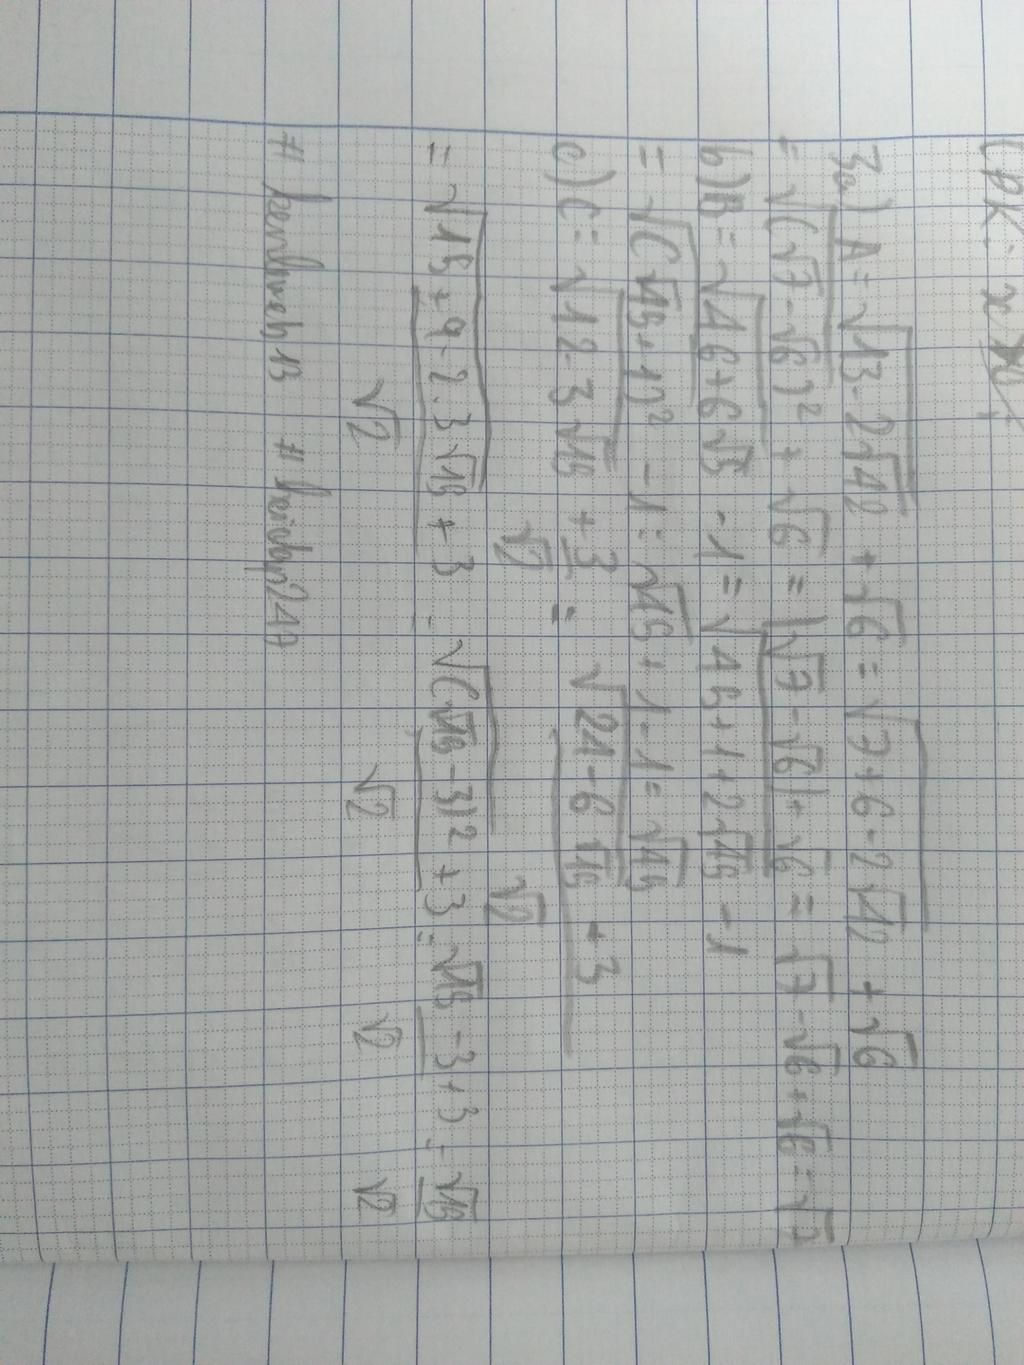 ĐK: x
3a) A = √13-2√42 + √6 = √7+6-2√42 + √6
= √(√7-√6)² + √6 = |√7-√6| + √6 = √7-√6+√6 = √7
b) B = √46+6√5 - 1 = √45+1+2√45 - 1
= √(√45+1)² - 1 = √45+1-1 = √45
c) C = √12-3√15 + 3/√2 = √24-6√15 + 3/√2
= √15+9-2.3√15 + 3/√2 = √(√15-3)² + 3/√2 = √15-3+3/√2 = √15/√2